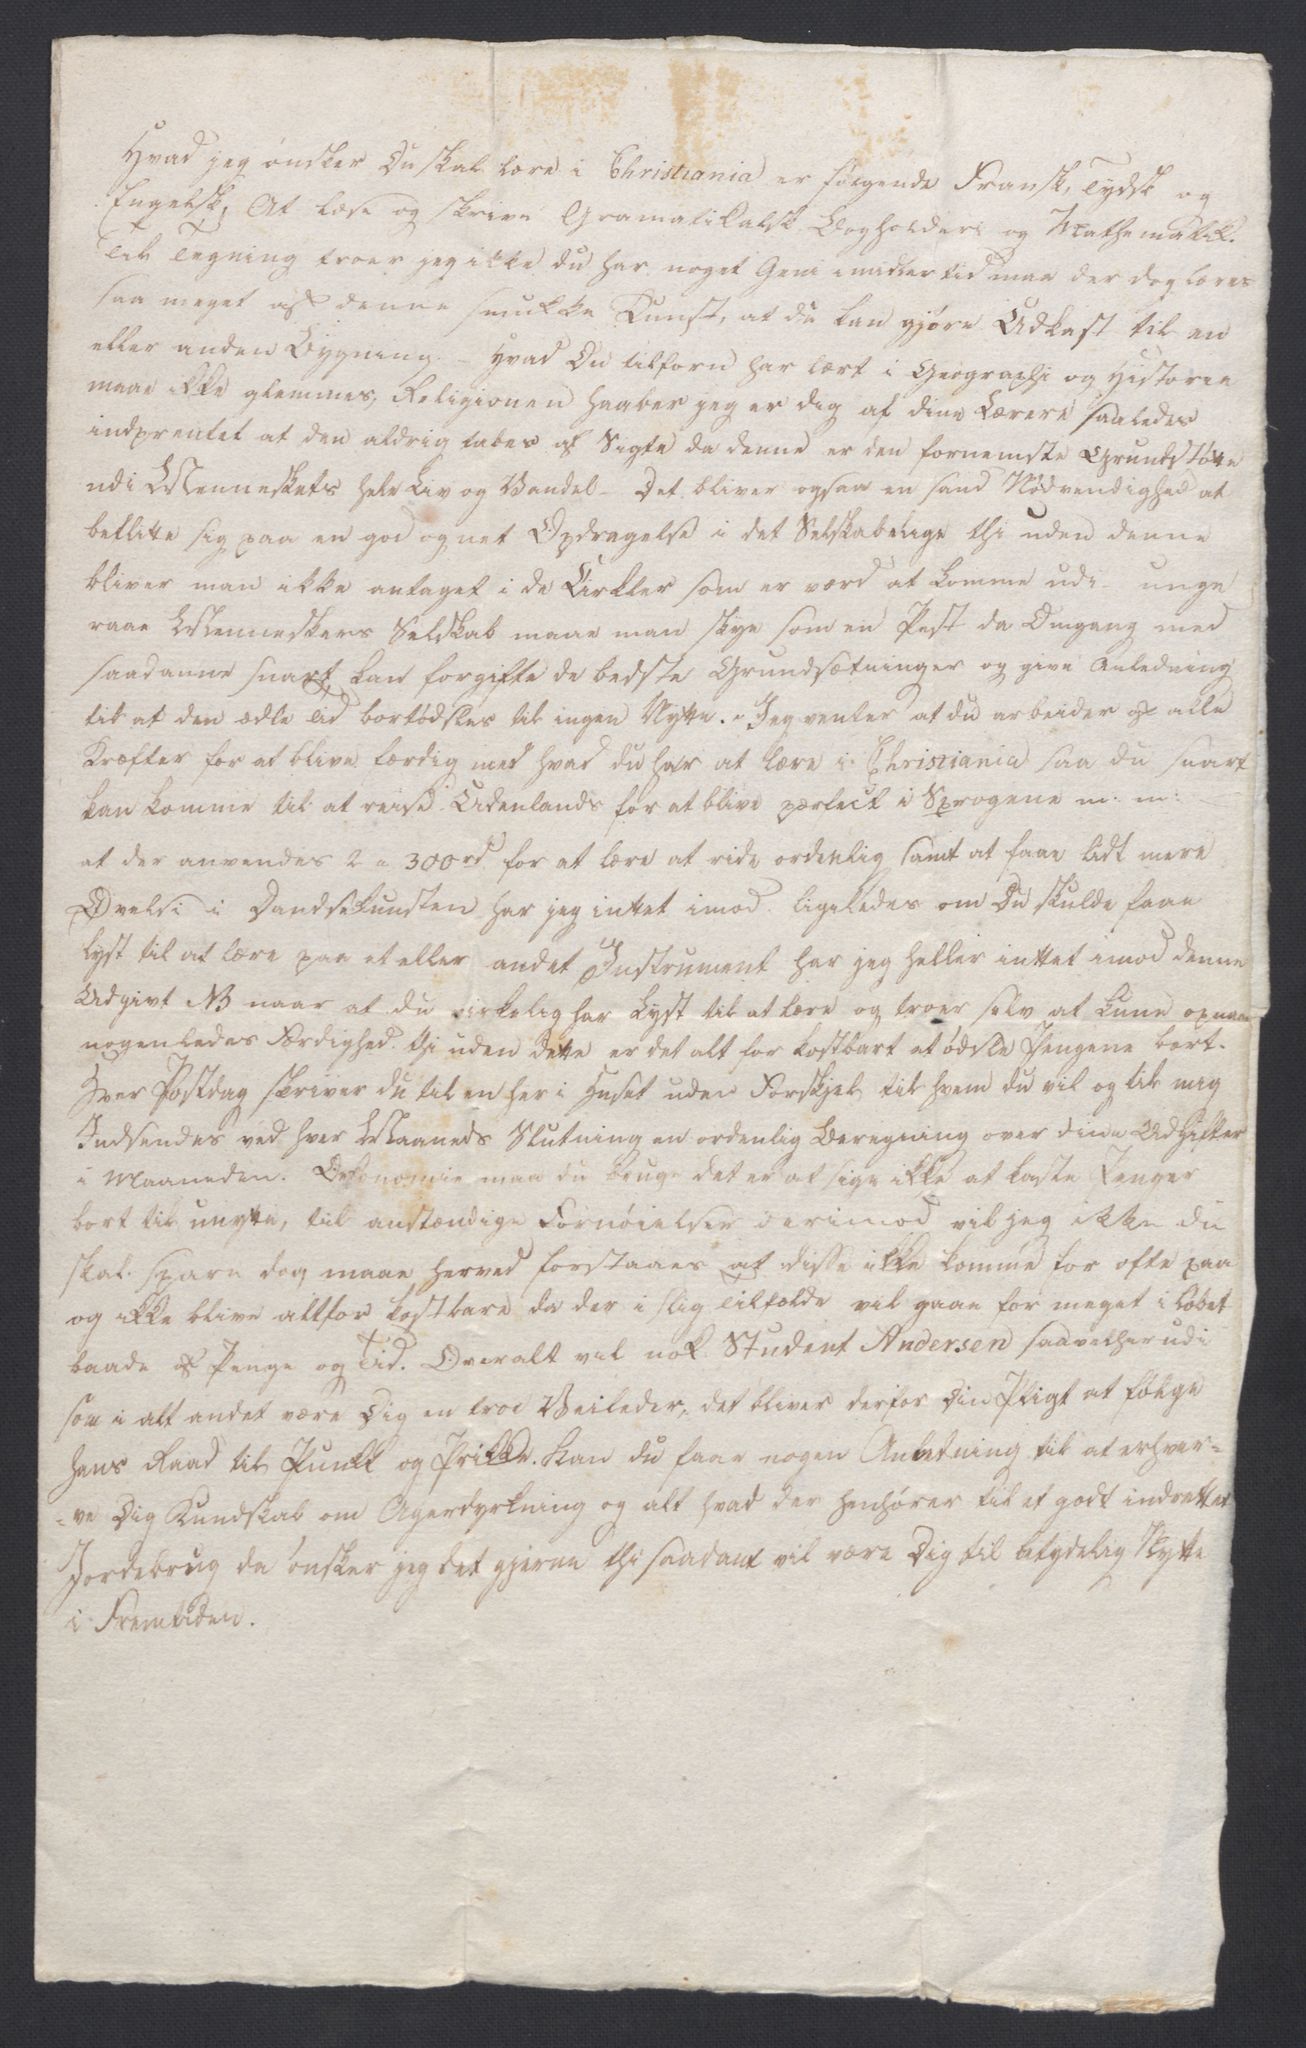 Hvad jeg ønsker Du skal lære i Christiania er følgende Fransk, Tydsk og
Engelsk, At læse og skrive Gramatikalsk Bogholderi og Mathematik.
Til Tegning troer jeg ikke du har noget Geni imidlertid maa der dog læres
saa meget af denne smukke Kunst, at du kan gjøre Udkast til en
eller anden Bygning. – Hvad Du tilforn har lært i Geographi og Historie
maae ikke glemmes, Religionen haaber jeg er dig af dine Lærere saaledes
indprentet at den aldrig tabes af Sigte da denne er den fornemste Grundstøtte
udi Menneskets hele Liv og Vandel – Det bliver ogsaa en sand Nødvendighed at
beflitte sig paa en god og net Opdragelse i det Selskabelige thi uden denne
bliver man ikke antaget i de Cirkler som er værd at komme udi – unge
raae Menneskers Selskab maae man skye som en Pest da Omgang med
saadanne snart kan forgifte de bedste Grundsætninger og give Anledning
til at den ædle Tid bortødsles til ingen Nytte. – Jeg venter at du arbeider af alle
Kræfter for at blive færdig med hvad du har at lære i Christiania saa du snart
kan komme til at reise Udenlands for at blive perfect i Sprogene m: m:
at der anvendes 2 a 300rd for at lære at ride ordentlig samt at faae lidt mere
Øvelse i Dandsekunsten har jeg intet imod ligeledes om Du skulde faae
Lyst til at lære paa et eller andet Instrument har jeg heller intet imod denne
Udgivt NB naar at du virkelig har Lyst til at lære og troer selv at kune opnaae
nogenledes Færdighed. thi uden dette er det alt for kostbart at ødsle Pengene bort.
Hver Postdag skriver du til en her i Huset uden Forskjel til hvem du vil og til mig
Indsendes ved hver Maaneds Slutning en ordentlig Beregning over dine Udgifter
i Maaneden. Oekonomie maa du bruge det er at sige ikke at kaste Penger
bort til unytte, til anstændige Fornøielser derimod vil jeg ikke du
skal spare dog maae herved forstaaes at disse ikke komme for ofte paa
og ikke blive altfor kostbare da der i slig Tilfælde vil gaae for meget i Løbet
baade af Penge og Tid. Overalt vil nok Student Andersen saavel herudi
som i alt andet være Dig en troe Veileder, det bliver derfor Din Pligt at følge
hans Raad til Punkt og Prikke. Kan du faae nogen Anledning til at erhver=
=ve Dig Kundskab om Agerdyrkning og alt hvad der henhører til et godt indrettet
Jordebrug da ønsker jeg det gjerne thi saadant vil være Dig til betydelig Nytte
i Fremtiden.